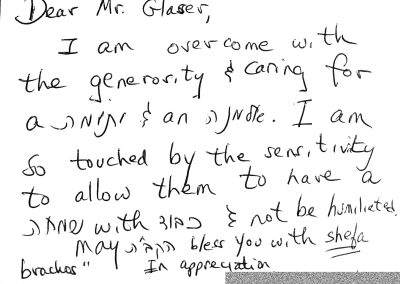 Dear Mr. Glaser,
I am overcome with
the generosity & caring for
a יתומה & an אלמנה. I am
so touched by the sensitivity
to allow them to have a
שמחה with כבוד & not be humiliated.
May הקב"ה bless you with shefa
brachos" In appreciation